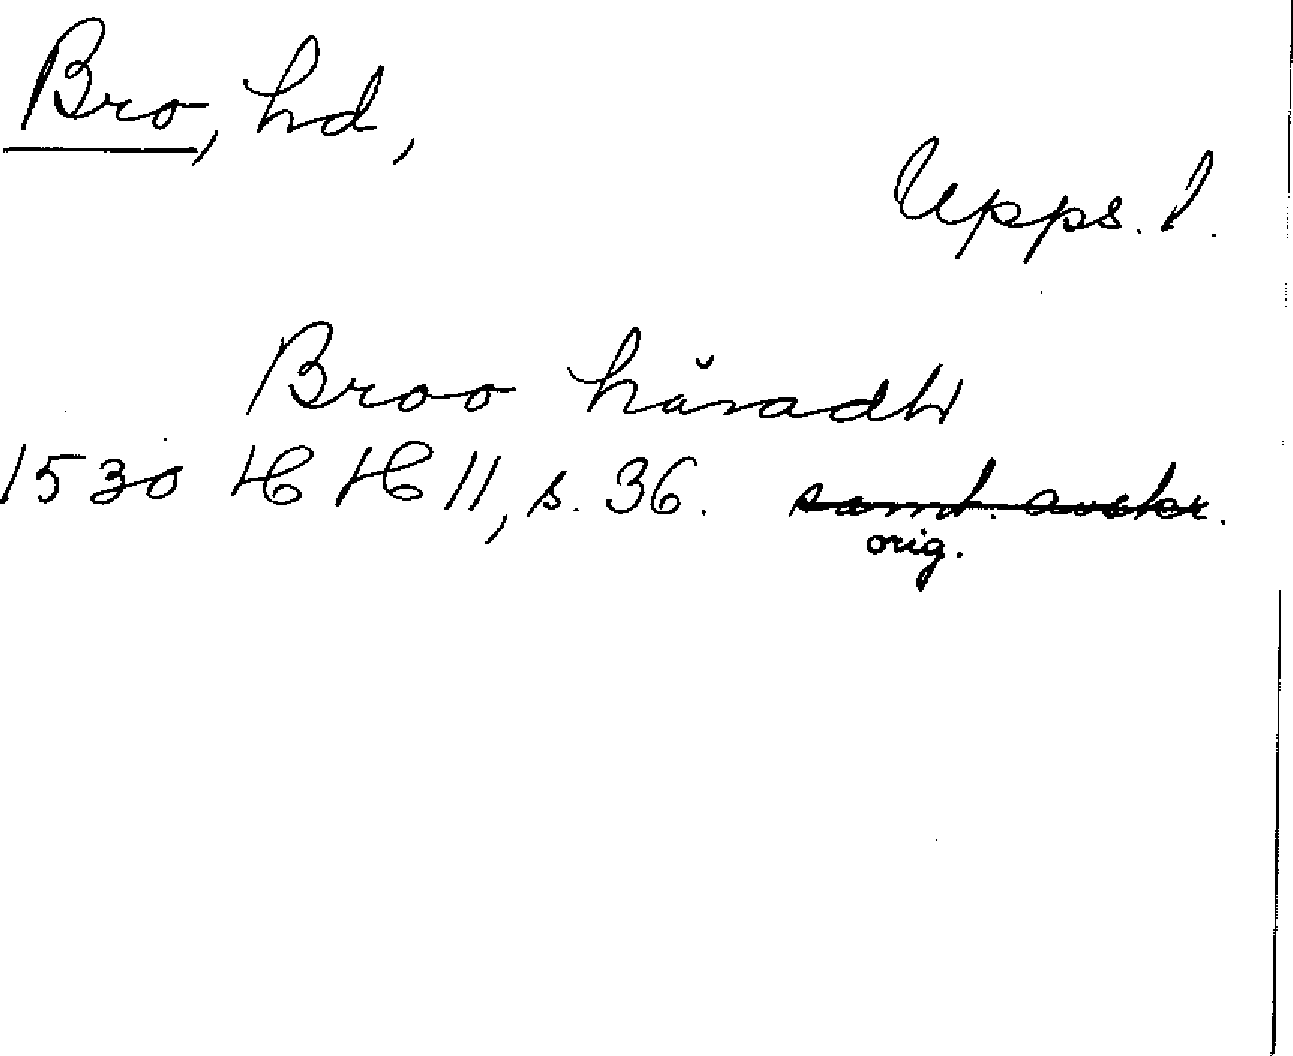 Bro, hd,
Upps. l.
Broo häradh
1530 HH 11, s. 36. samt. avskr.
orig.